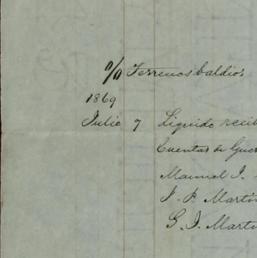 o/o Terrenos baldios
1869
Julio 7 Liquido recib
Cuentas de Guer
Manuel I.
J. P. Martin
G. I. Martin